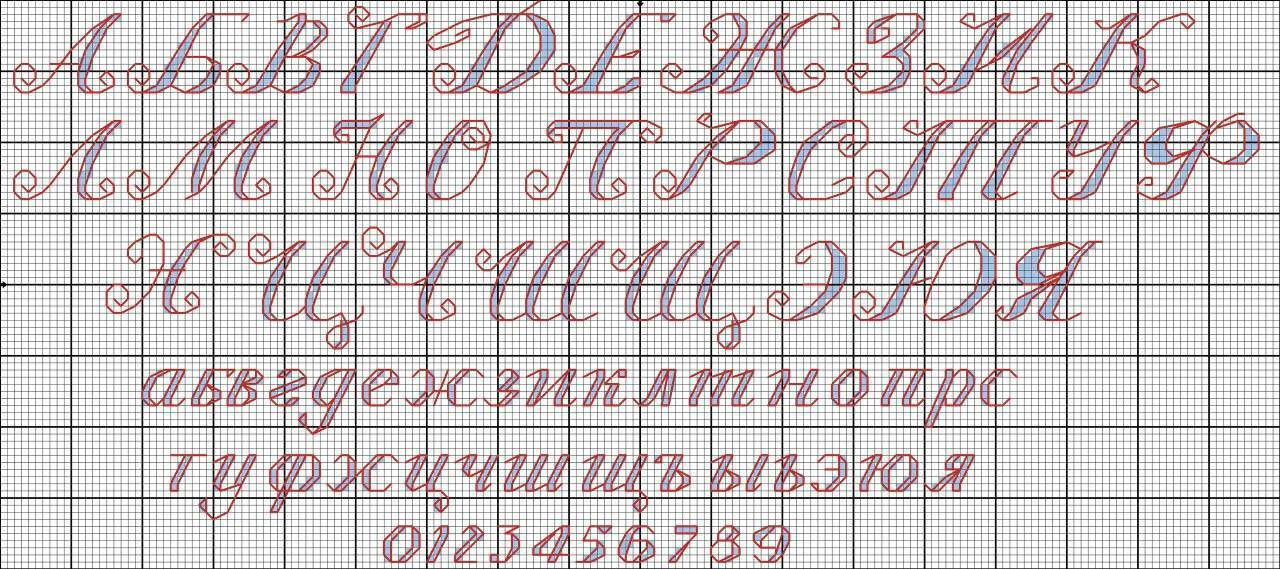 АБВГДЕЖЗИК
ЛМНОПРСТУФ
ХЦЧШЩЭЮЯ
абвгдежзиклмнопрс
туфхцчшщъыьэюя
0123456789